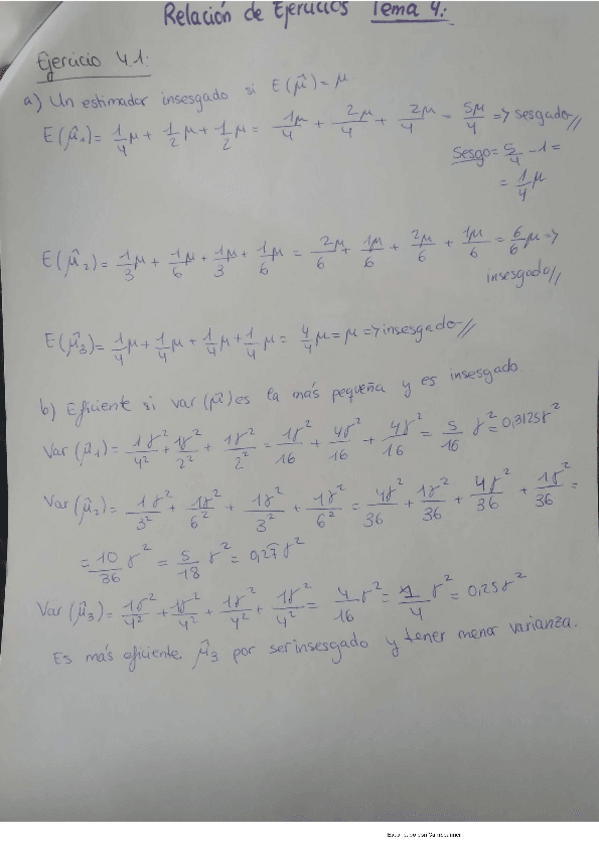 Relación de Ejercicios Tema 4:
Ejercicio 4.1:
a) Un estimador insesgado si E(μ̂) = μ
E(μ̂₁) = 1/4 μ + 1/2 μ + 1/2 μ = 1μ/4 + 2μ/4 + 2μ/4 = 5μ/4 => sesgado//
Sesgo = 5/4 - 1 =
= 1/4 μ
E(μ̂₂) = 1/3 μ + 1/6 μ + 1/3 μ + 1/6 μ = 2μ/6 + 1μ/6 + 2μ/6 + 1μ/6 = 6/6 μ =>
insesgado//
E(μ̂₃) = 1/4 μ + 1/4 μ + 1/4 μ + 1/4 μ = 4/4 μ = μ => insesgado//
b) Eficiente si var(μ̂) es la más pequeña y es insesgado
Var(μ̂₁) = 1σ²/4² + 1σ²/2² + 1σ²/2² = 1σ²/16 + 4σ²/16 + 4σ²/16 = 5/16 σ² = 0,3125σ²
Var(μ̂₂) = 1σ²/3² + 1σ²/6² + 1σ²/3² + 1σ²/6² = 4σ²/36 + 1σ²/36 + 4σ²/36 + 1σ²/36 =
= 10/36 σ² = 5/18 σ² = 0,27σ²
Var(μ̂₃) = 1σ²/4² + 1σ²/4² + 1σ²/4² + 1σ²/4² = 4/16 σ² = 1/4 σ² = 0,25σ²
Es más eficiente μ̂₃ por ser insesgado y tener menor varianza.